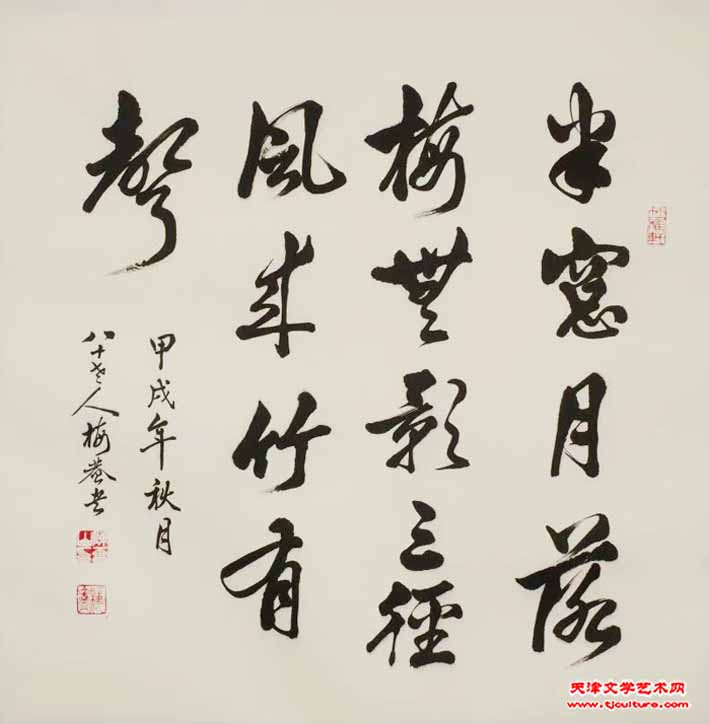 半窓月落
梅無影三徑
風来竹有
聲
甲戌年秋月
八十老人梅菴书
天津文学艺术网
www.tjculture.com